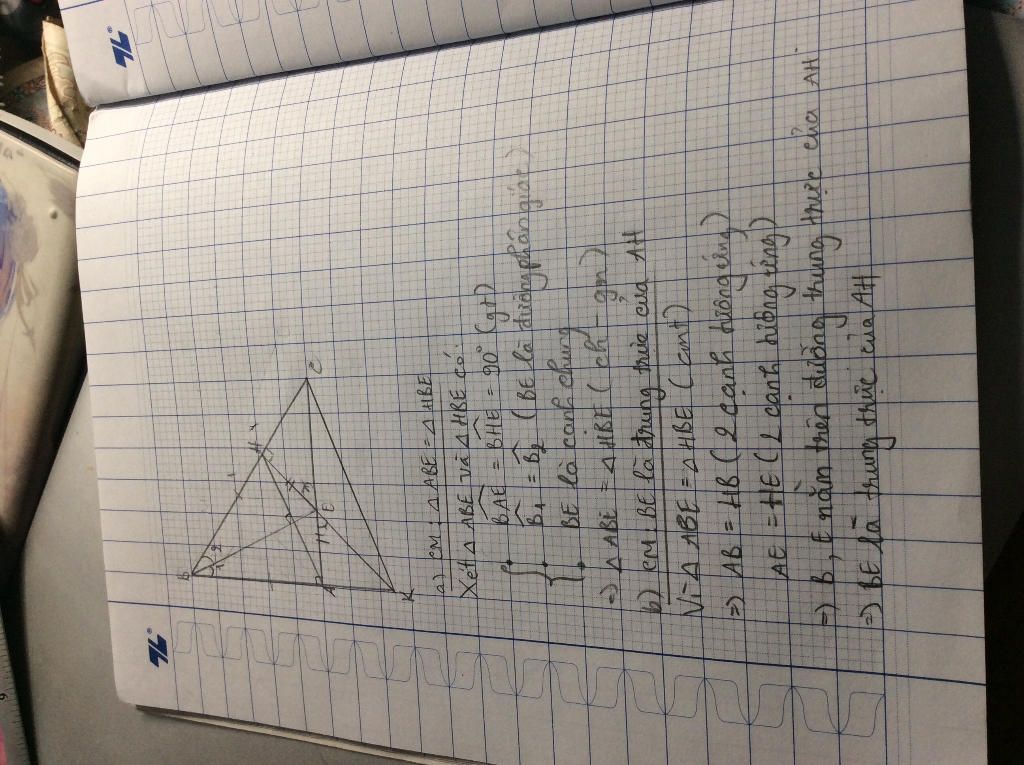 B
1 2
H
A
E
C
K
a) CM: △ ABE = △ HBE
Xét △ ABE và △ HBE có:
BAE = BHE = 90° (gt)
B1 = B2 (BE là đường phân giác)
BE là cạnh chung
=> △ ABE = △ HBE (ch - gn)
b) CM: BE là trung trực của AH
Vì △ ABE = △ HBE (cmt)
=> AB = HB (2 cạnh tương ứng)
AE = HE (2 cạnh tương ứng)
=> B, E nằm trên đường trung trực của AH.
=> BE là trung trực của AH